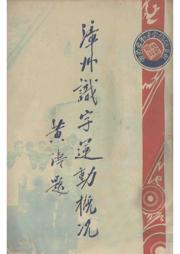 漳州識字運動概况
黄濤題